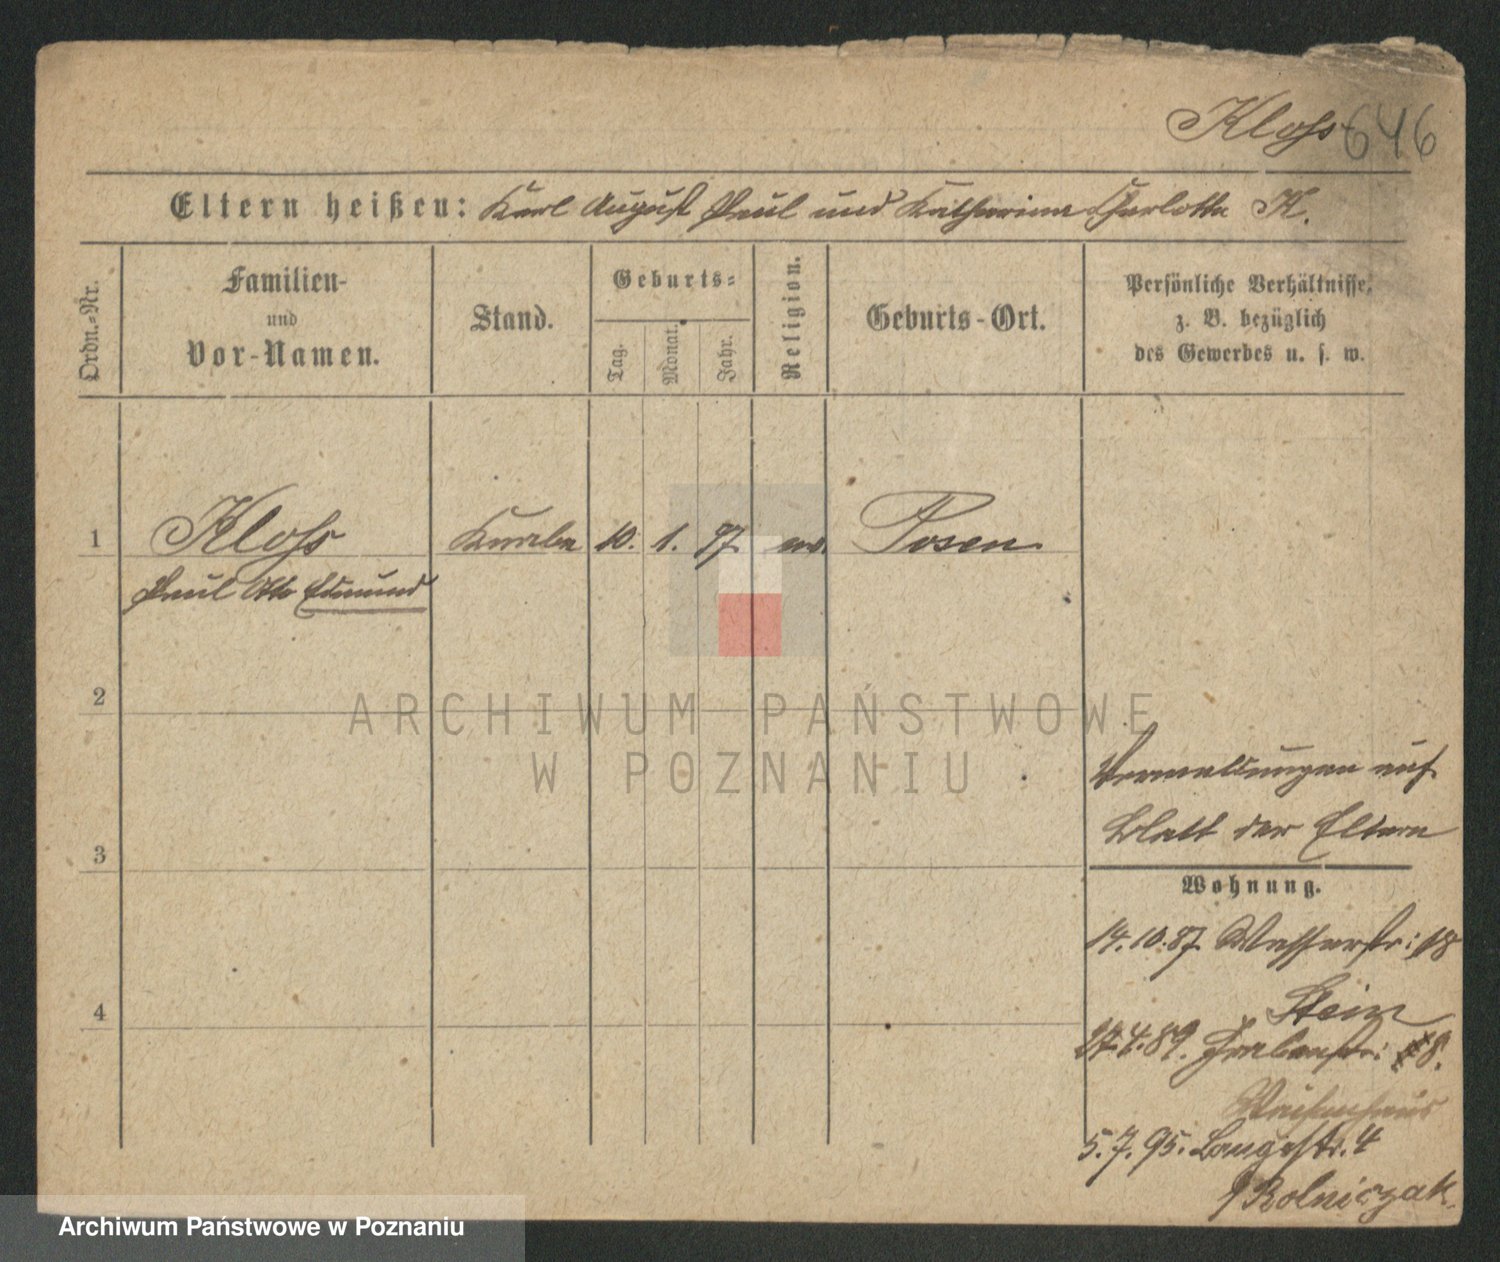 Kloss 646
Eltern heißen: Karl August Paul und Katharina Charlotte K.
Ordn.-Nr.
Familien-
und
Vor-Namen.
Stand.
Geburts-
Tag.
Monat.
Jahr.
Religion.
Geburts-Ort.
Persönliche Verhältnisse,
z. B. bezüglich
des Gewerbes u. s. w.
1 Kloss Knabe 10. 1. 87 ev. Posen
Paul Otto Edmund
2
3
4
Vermeldungen auf
Blatt der Eltern
Wohnung.
14.10.87 Wasserstr: 18
Stein
27.4.89. Grabenstr: 8.
Waisenhaus
5.7.95. Langestr. 4
Rolniczak
ARCHIWUM PAŃSTWOWE
W POZNANIU
Archiwum Państwowe w Poznaniu